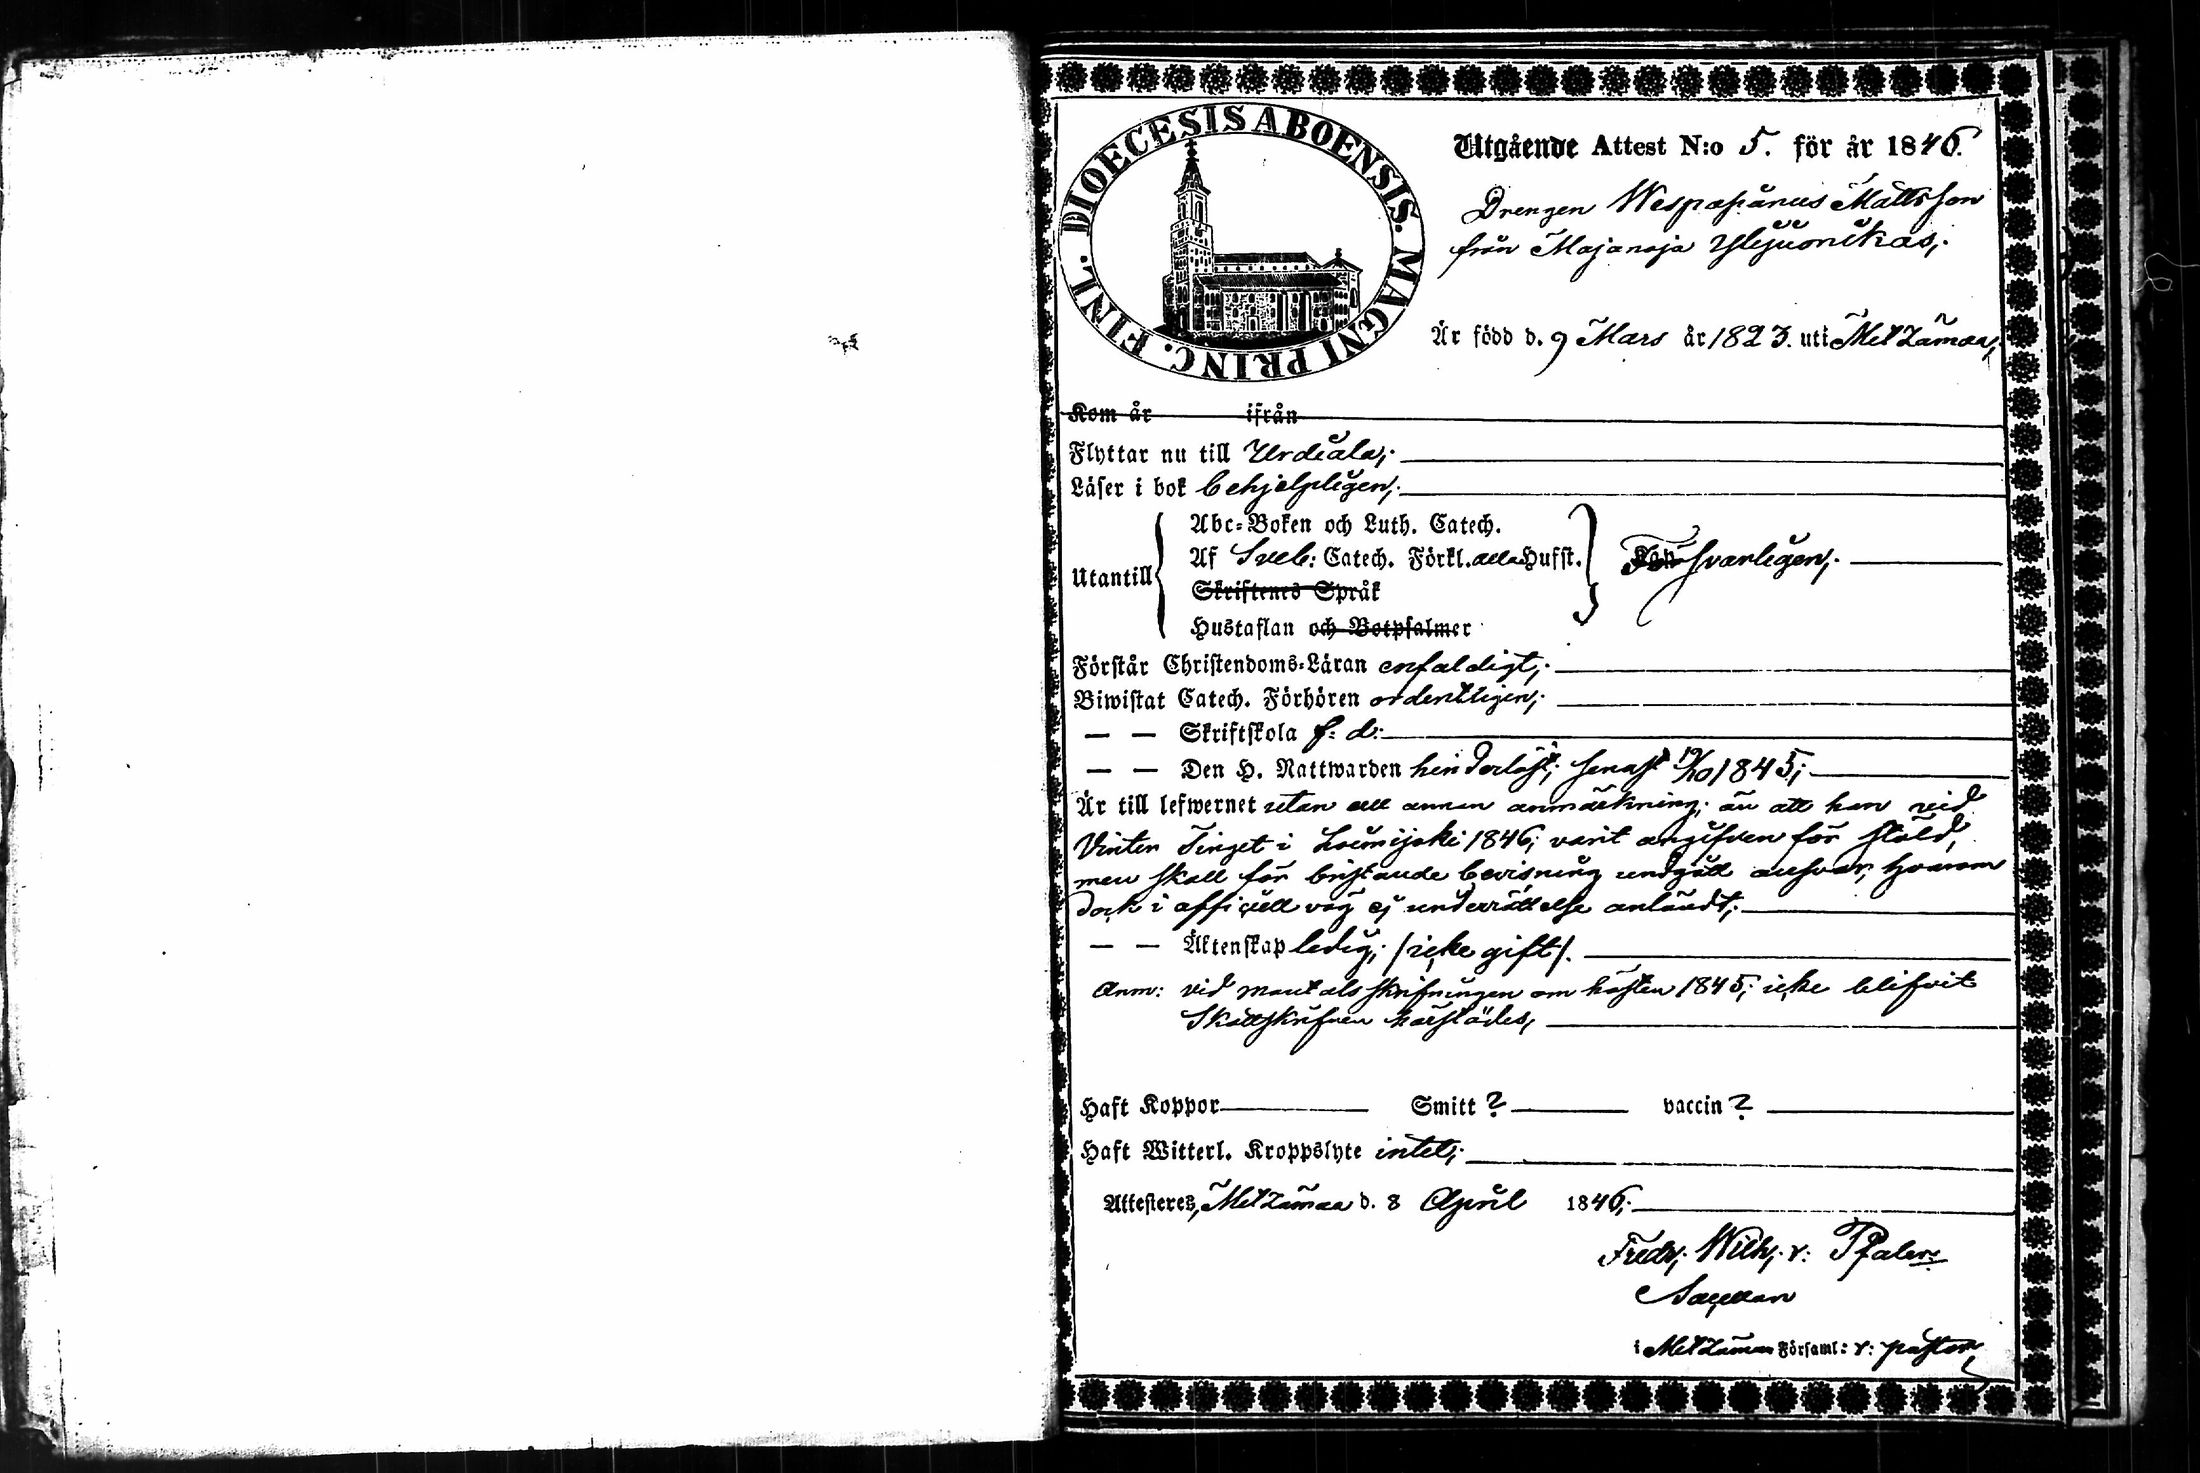 DIOECESIS ABOENSIS. MAGNI PRINC. FINL.
Utgående Attest N:o 5. för år 1846.
Drengen Wespasianus Mattsson
från Majanoja Ylijuonikas;
Är född d. 9 Mars år 1823. uti Metzämaa,
Kom år ifrån
Flyttar nu till Urdiala;
Läser i bok behjelpligen;
Abc-Boken och Luth. Catech.
Af Sveb: Catech. Förkl. alla Hufst.
Utantill Försvarligen;
Skriftenes Språk
Hustaflan och Botpsalmer
Förstår Christendoms-Läran enfaldigt;
Biwistat Catech. Förhören ordentligen;
— — Skriftskola f: d:
— — Den H. Nattwarden hinderlöst; senast 19/10 1845;
Är till lefwernet utan all annan anmärkning; än att han vid
Vinter Tinget i Loimijoki 1846; varit angifven för stöld,
men skall för bristande bevisning undgått ansvar, hvarom
dock i officiell väg ej underrättelse anländt;
— — Äktenskap ledig; /icke gift/.
Anm: vid mantalsskrifningen om hösten 1845; icke blifvit
Skattskrifven härstädes,
Haft Koppor Smitt ? vaccin ?
Haft Witterl. Kroppslyte intet;
Attesteres, Metzämaa d. 8 April 1846;
Fredr; Wilh; v: Pfaler
Sacellan
i Metzämaa Församl: v: pastor,